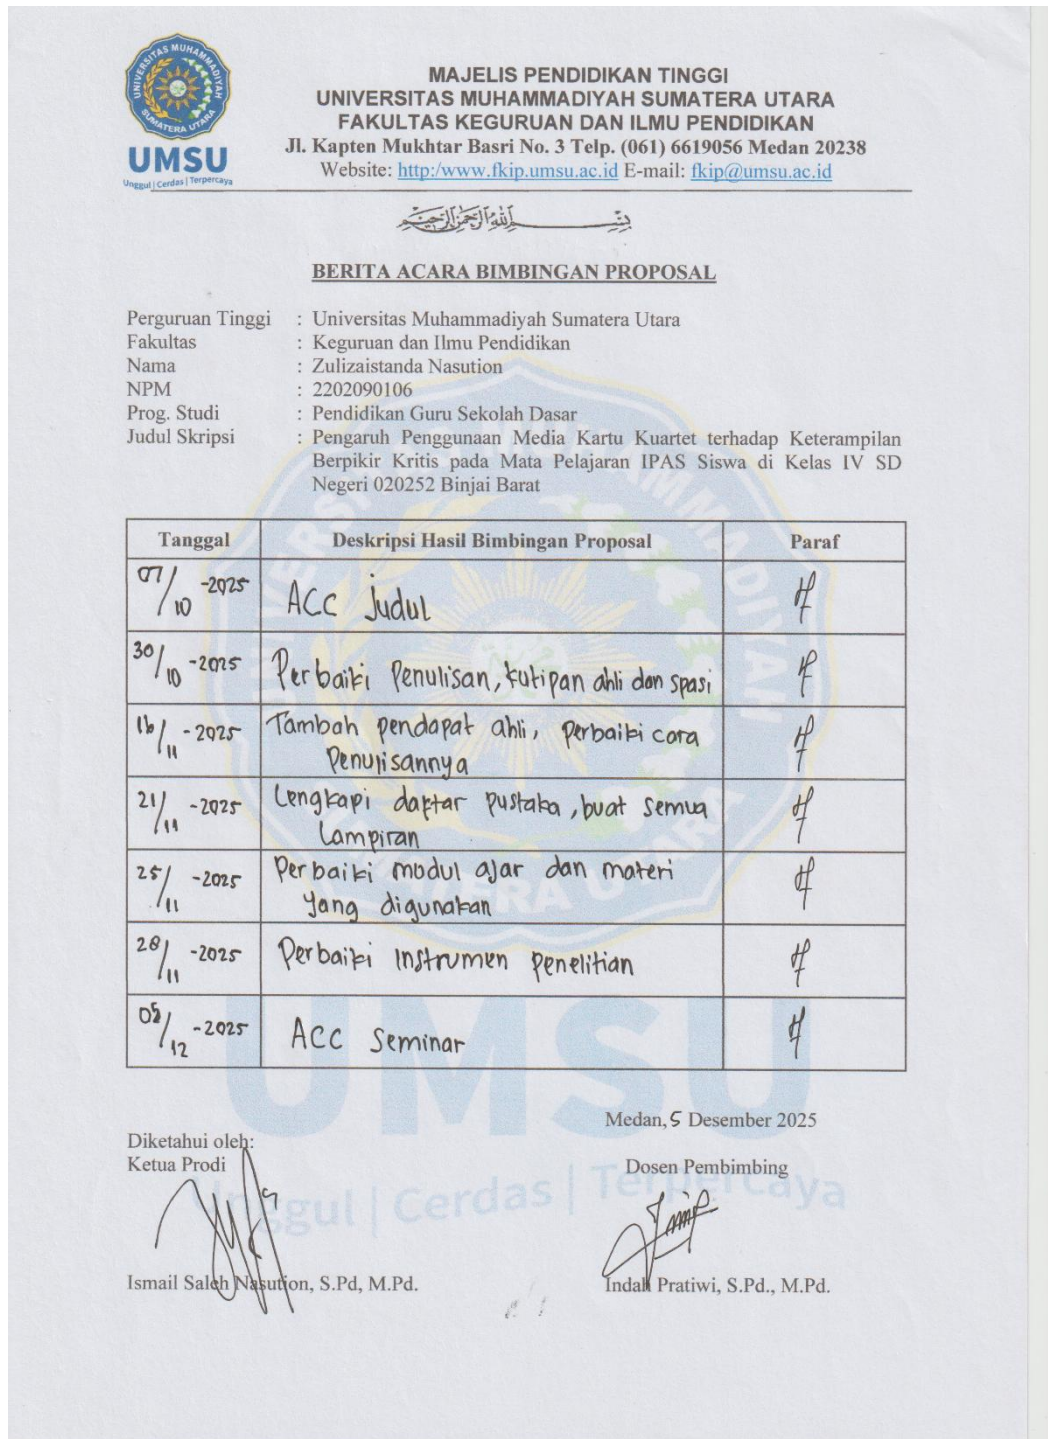 UNIVERSITAS MUHAMMADIYAH
SUMATERA UTARA
UMSU
Unggul | Cerdas | Terpercaya
MAJELIS PENDIDIKAN TINGGI
UNIVERSITAS MUHAMMADIYAH SUMATERA UTARA
FAKULTAS KEGURUAN DAN ILMU PENDIDIKAN
Jl. Kapten Mukhtar Basri No. 3 Telp. (061) 6619056 Medan 20238
Website: http:/www.fkip.umsu.ac.id E-mail: fkip@umsu.ac.id
بسم الله الرحمن الرحيم
BERITA ACARA BIMBINGAN PROPOSAL
Perguruan Tinggi : Universitas Muhammadiyah Sumatera Utara
Fakultas : Keguruan dan Ilmu Pendidikan
Nama : Zulizaistanda Nasution
NPM : 2202090106
Prog. Studi : Pendidikan Guru Sekolah Dasar
Judul Skripsi : Pengaruh Penggunaan Media Kartu Kuartet terhadap Keterampilan
Berpikir Kritis pada Mata Pelajaran IPAS Siswa di Kelas IV SD
Negeri 020252 Binjai Barat
Tanggal Deskripsi Hasil Bimbingan Proposal Paraf
07/10 -2025 ACC Judul
30/10 -2025 Perbaiki Penulisan, kutipan ahli dan spasi
16/11 -2025 Tambah pendapat ahli, perbaiki cara
Penulisannya
21/11 -2025 Lengkapi daftar pustaka, buat semua
Lampiran
25/11 -2025 Perbaiki modul ajar dan materi
yang digunakan
28/11 -2025 Perbaiki Instrumen penelitian
05/12 -2025 ACC Seminar
Medan, 5 Desember 2025
Diketahui oleh:
Ketua Prodi Dosen Pembimbing
Ismail Saleh Nasution, S.Pd, M.Pd. Indah Pratiwi, S.Pd., M.Pd.
UNIVERSITAS MUHAMMADIYAH
SUMATERA UTARA
UMSU
Unggul | Cerdas | Terpercaya